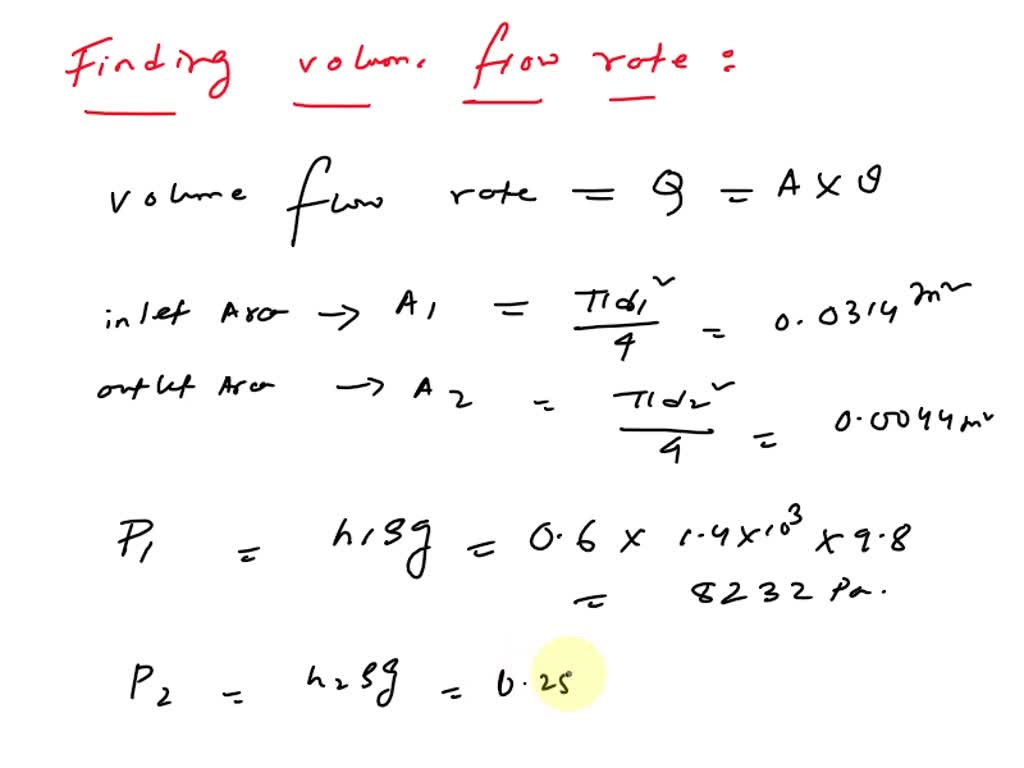 Finding volume flow rate :
volume flow rate = Q = A × ϑ
inlet Area → A₁ = πd₁²/4 = 0.0314 m²
outlet Area → A₂ = πd₂²/4 = 0.0044 m²
P₁ = h₁ρg = 0.6 × 1.4×10³ × 9.8
= 8232 Pa.
P₂ = h₂ρg = 0.25